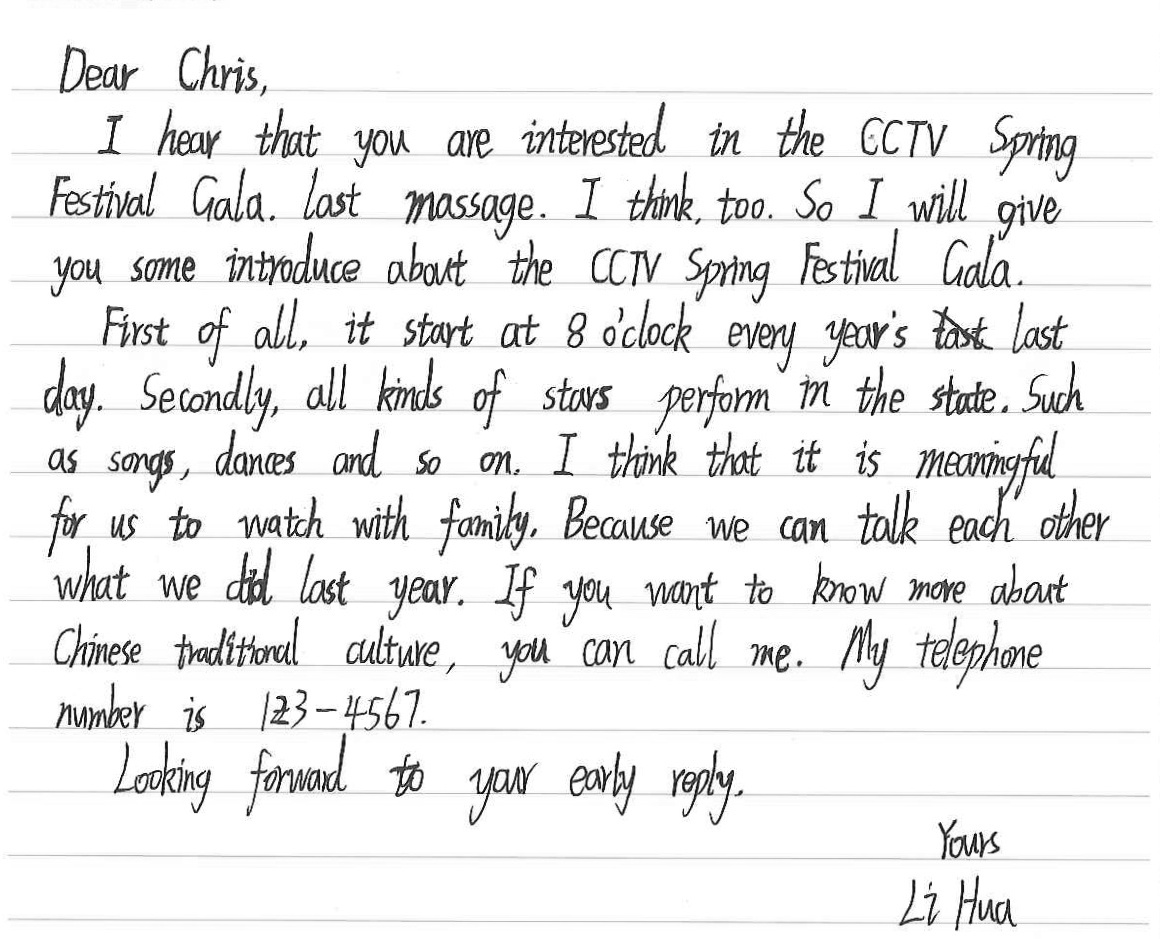 Dear Chris,
I hear that you are interested in the CCTV Spring
Festival Gala. last massage. I think, too. So I will give
you some introduce about the CCTV Spring Festival Gala.
First of all, it start at 8 o'clock every year's last
day. Secondly, all kinds of stars perform in the state. Such
as songs, dances and so on. I think that it is meaningful
for us to watch with family. Because we can talk each other
what we did last year. If you want to know more about
Chinese traditional culture, you can call me. My telephone
number is 123-4567.
Looking forward to your early reply.
Yours
Li Hua